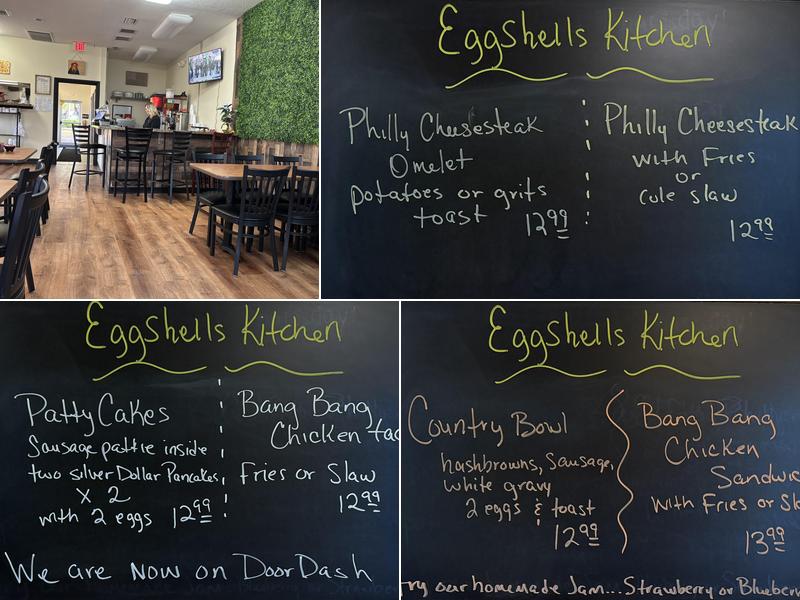 EXIT
Eggshells Kitchen
Philly Cheesesteak
Omelet
potatoes or grits
toast 12.99
Philly Cheesesteak
with Fries
or
Cole slaw
12.99
Eggshells Kitchen
Patty Cakes
Sausage pattie inside
two silver Dollar Pancakes
X 2
with 2 eggs 12.99
Bang Bang
Chicken
Fries or Slaw
12.99
We are now on DoorDash
Eggshells Kitchen
Country Bowl
hashbrowns, Sausage,
white gravy
2 eggs & toast
12.99
Bang Bang
Chicken
Sandwic
with Fries or Sl
13.99
ry our homemade Jam... Strawberry or Blueberr